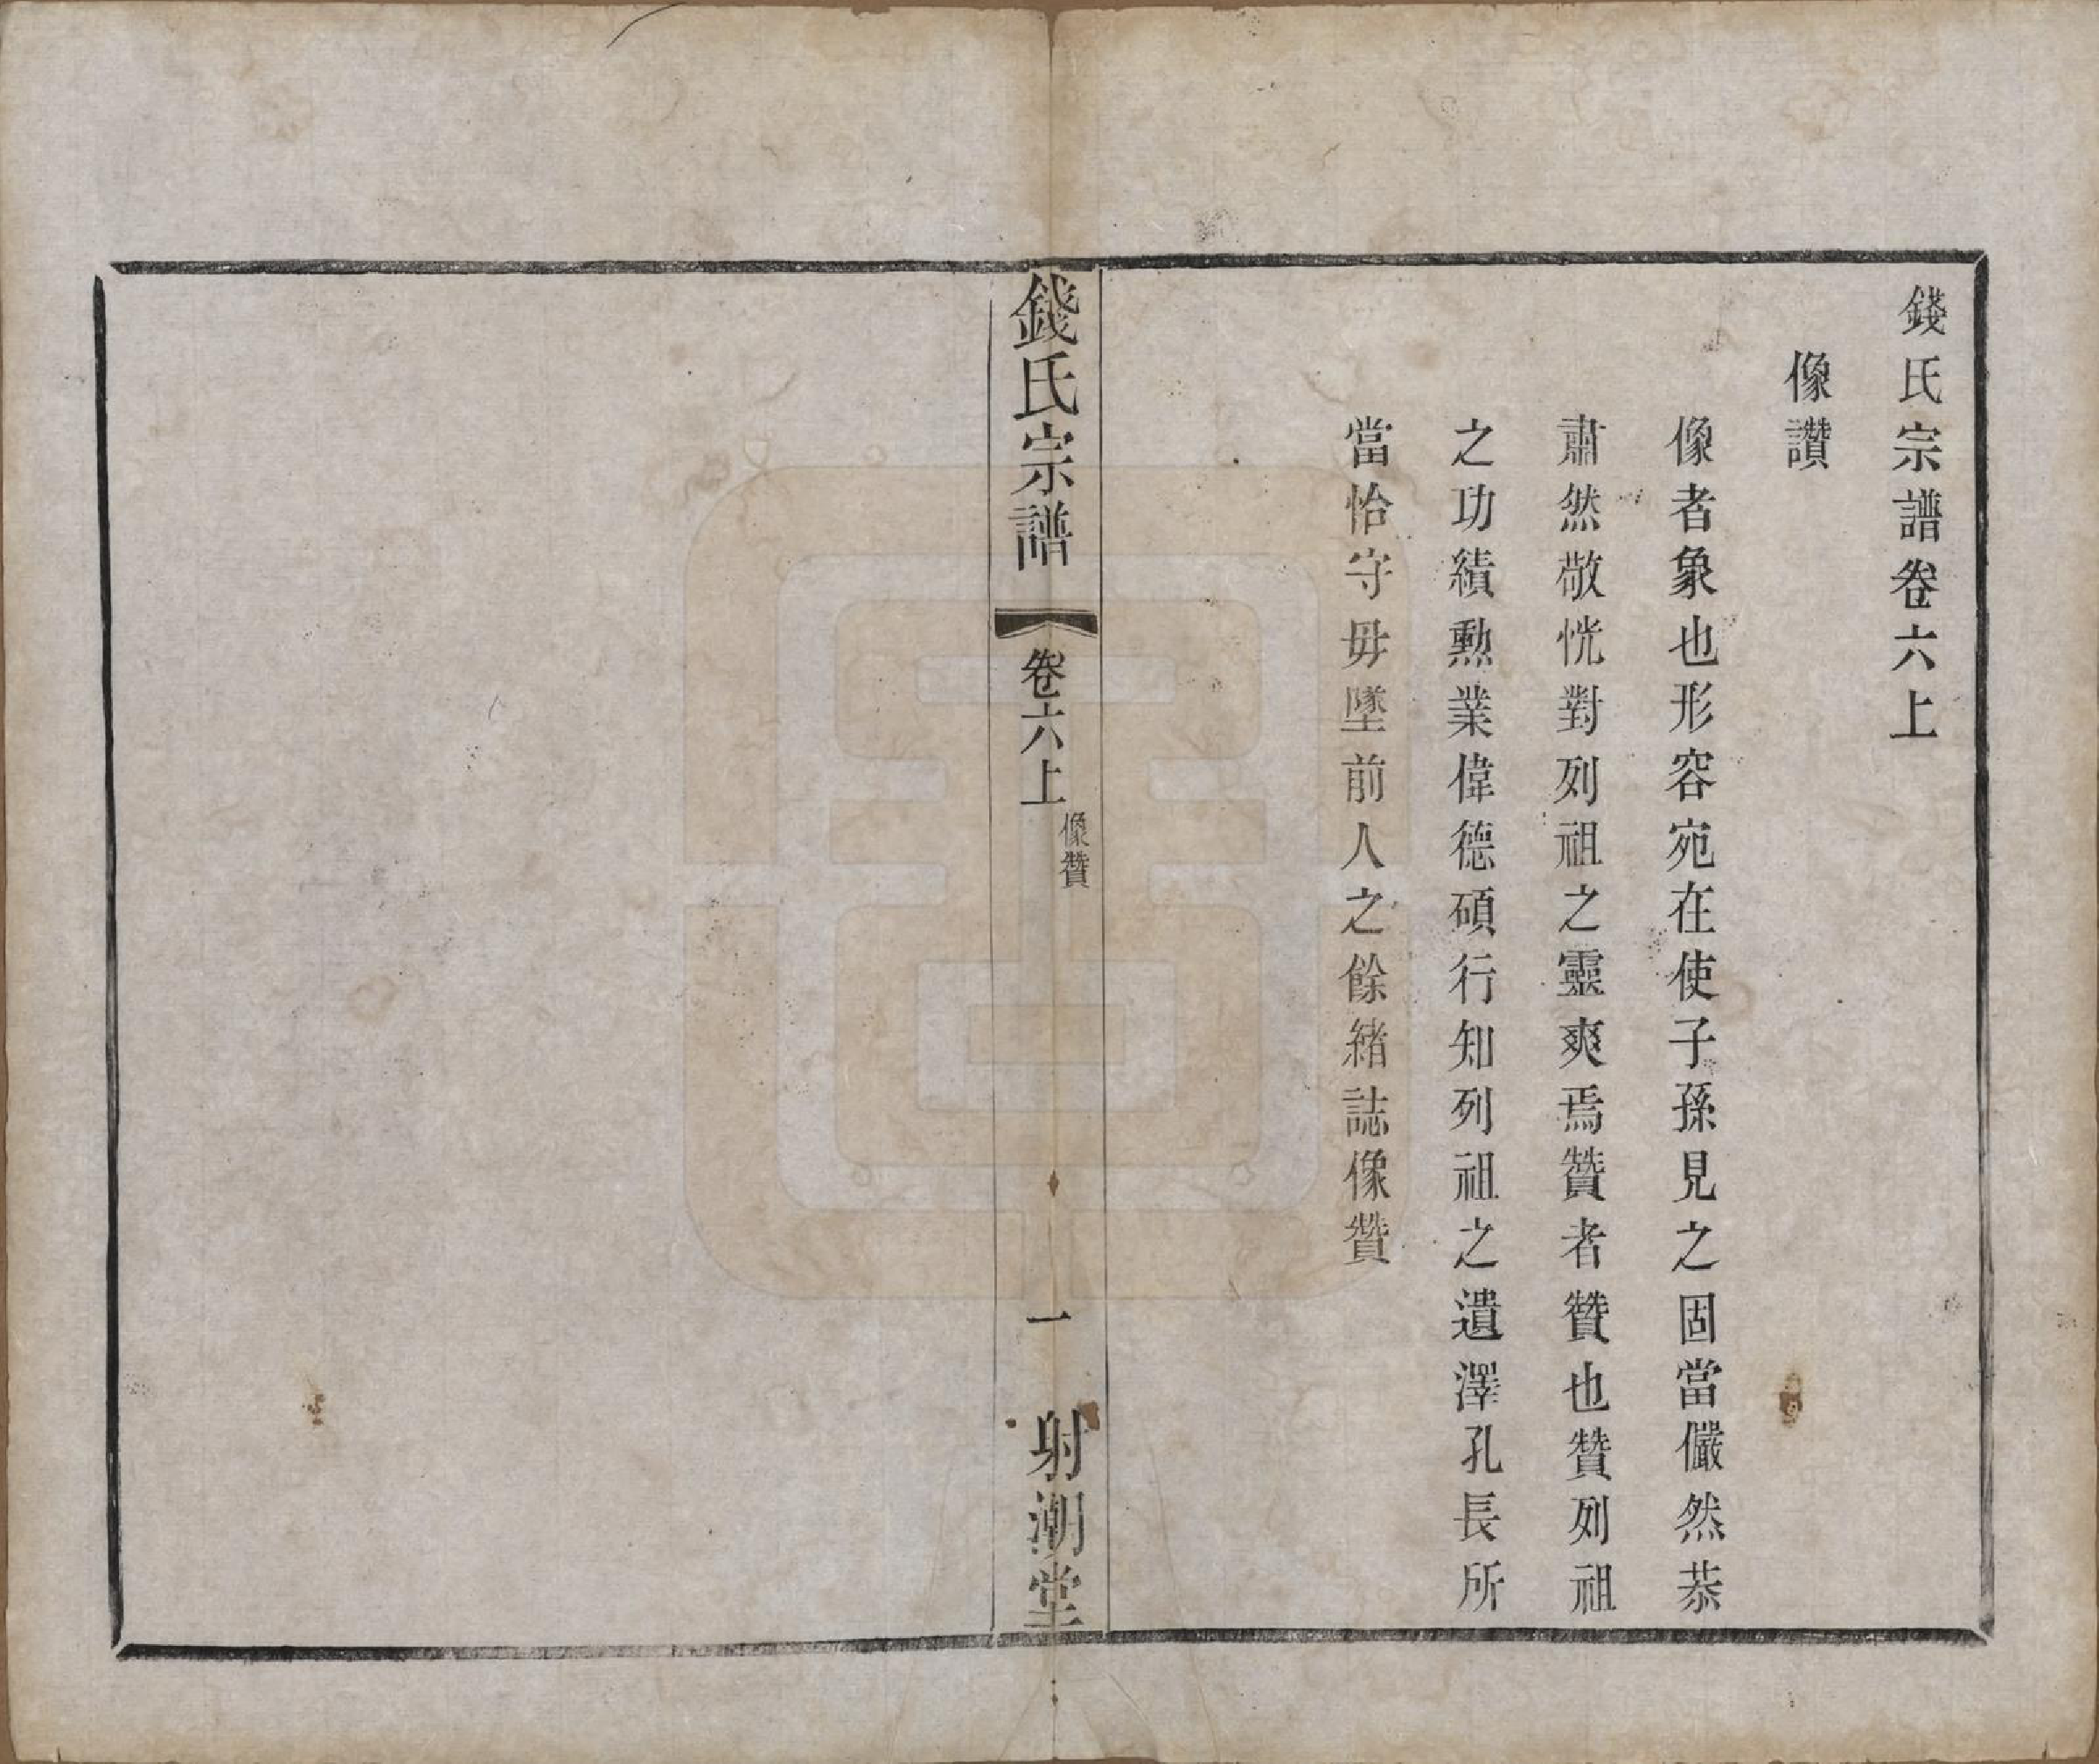 錢氏宗譜卷六上
像讚
像者象也形容宛在使子孫見之固當儼然恭
肅然敬恍對列祖之靈爽焉贊者贊也贊列祖
之功績勲業偉德碩行知列祖之遺澤孔長所
當恰守毋墜前人之餘緒誌像贊
錢氏宗譜
卷六上
像贊
一
射潮堂